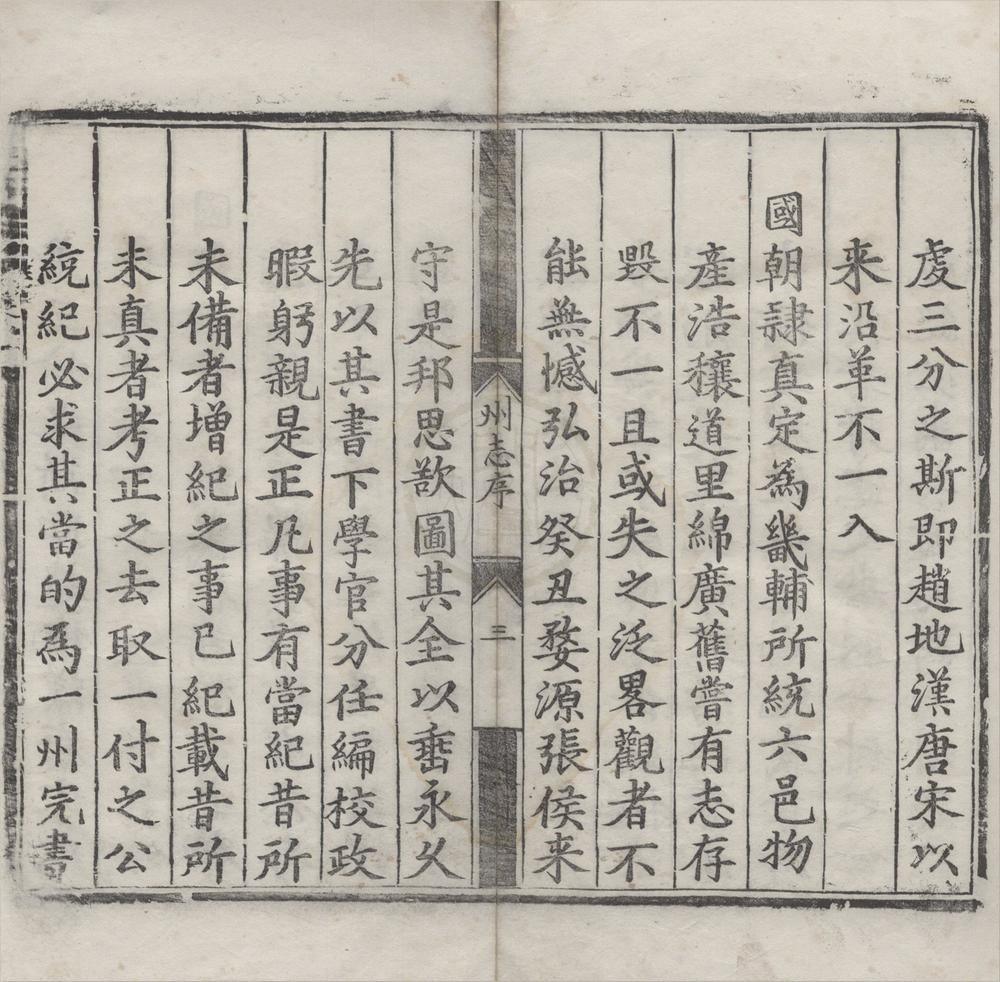 虔三分之斯即趙地漢唐宋以
来沿革不一入
國朝隷真定為畿輔所統六邑物
產浩穰道里綿廣舊嘗有志存
毀不一且或失之泛畧觀者不
能無憾弘治癸丑婺源張侯来
州志序
三
守是邦思欲圖其全以垂永久
先以其書下學官分任編校政
暇躬親是正凡事有當紀昔所
未備者增紀之事已紀載昔所
未真者考正之去取一付之公
綂紀必求其當的為一州完書